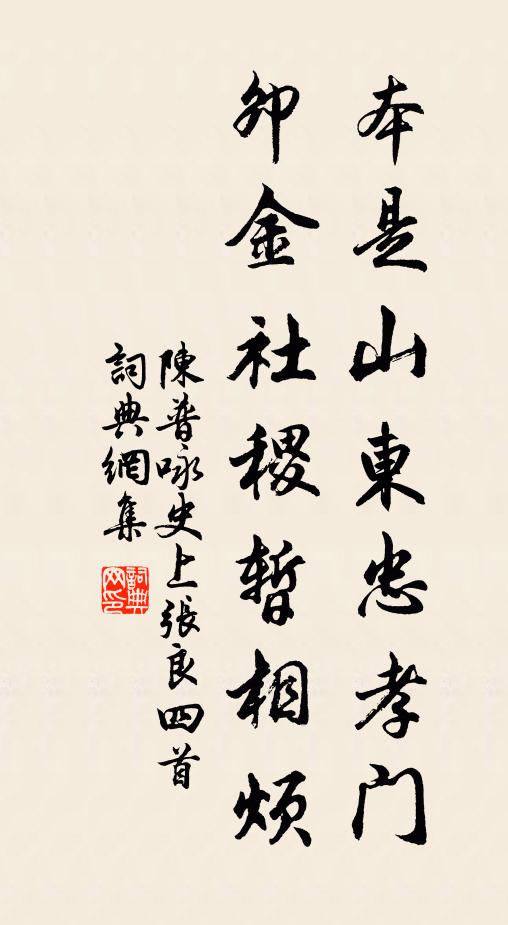 本是山東忠孝門
卯金社稷暫相煩
陳普咏史上張良四首
詞典網集
詞典网印